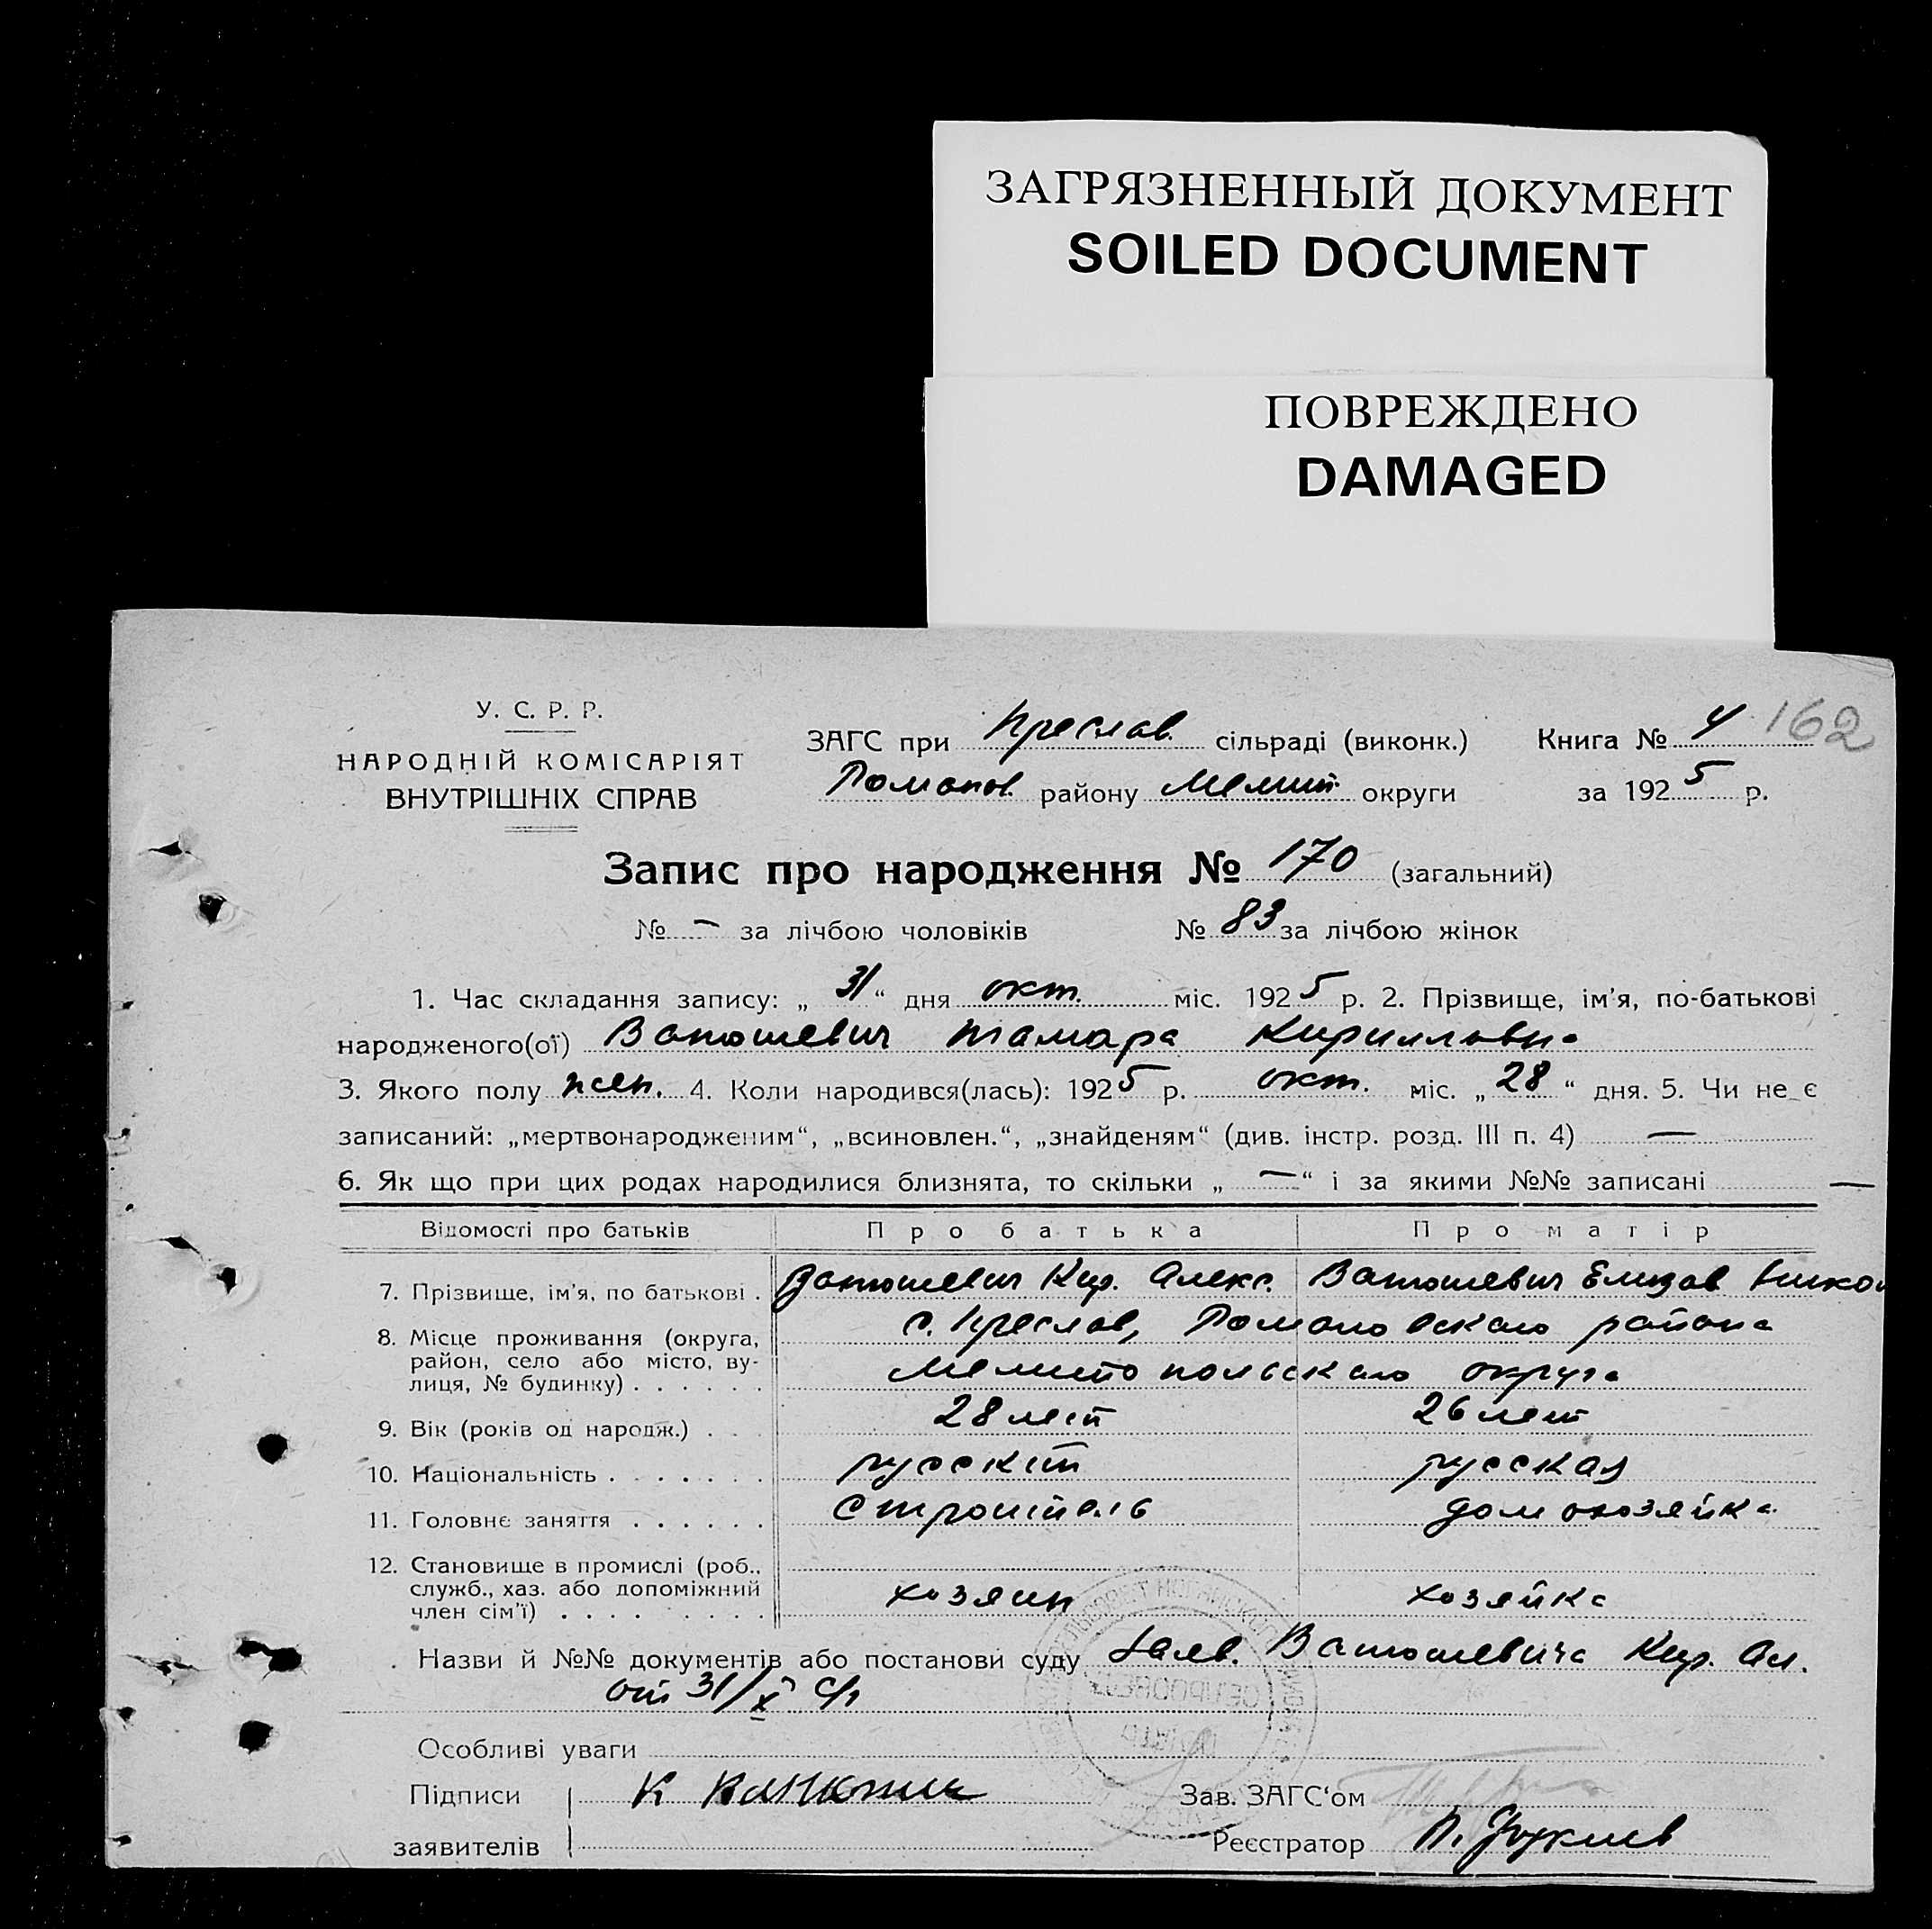 ЗАГРЯЗНЕННЫЙ ДОКУМЕНТ
SOILED DOCUMENT
ПОВРЕЖДЕНО
DAMAGED
У. С. Р. Р.
НАРОДНІЙ КОМІСАРІЯТ
ВНУТРІШНІХ СПРАВ
ЗАГС при Преслав. сільраді (виконк.) Книга № 4 162
Романов. району Мелит. округи за 1925 р.
Запис про народження № 170 (загальний)
№ — за лічбою чоловіків № 83 за лічбою жінок
1. Час складання запису: „ 31 “ дня окт. міс. 1925 р. 2. Прізвище, ім'я, по-батькові
народженого(ої) Тамара Кирилловна
3. Якого полу жен. 4. Коли народився(лась): 1925 р. окт. міс. „ 28 “ дня. 5. Чи не є
записаний: „мертвонародженим“, „всиновлен.“, „знайденям“ (див. інстр. розд. III п. 4) —
6. Як що при цих родах народилися близнята, то скільки „ — “ і за якими №№ записані —
Відомості про батьків Про батька Про матір
7. Прізвище, ім'я, по батькові . Кир. Алекс. Елизав
8. Місце проживання (округа, с. Преслав, Романовского района
район, село або місто, ву-
лиця, № будинку) . . . . . . Мелитопольского округа
9. Вік (років од народж.) . . . 28 лет 26 лет
10. Національність . . . . . . . русский русская
11. Головнє заняття . . . . . . строитель домохозяйка
12. Становище в промислі (роб.,
служб., хаз. або допоміжний хозяин хозяйка
член сім'ї) . . . . . . . . .
. Назви й №№ документів або постанови суду Заяв. Кир. Ал.
от 31/X с/г
Особливі уваги
Підписи К Зав. ЗАГС'ом
заявителів Реєстратор П.